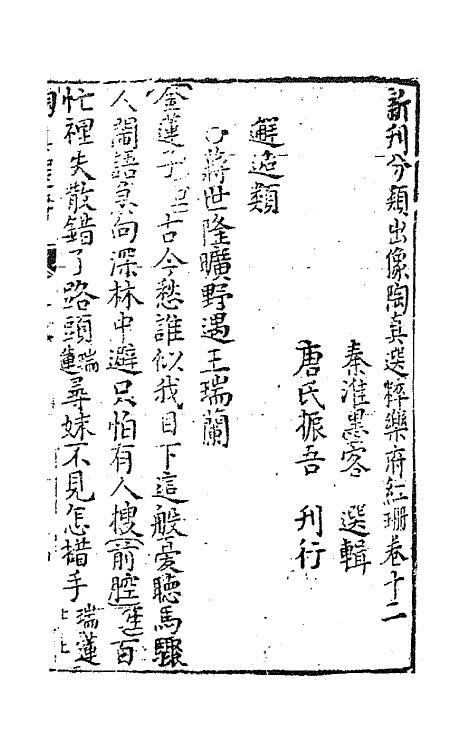 新刊分類出像陶真選粹樂府紅珊卷十二
秦淮墨客　選輯
唐氏振吾　刊行
邂逅類
蔣世隆曠野遇王瑞蘭
金蓮子 古今愁誰似我目下這般憂聴馬驟
人鬧語急向深林中避只怕有人搜前腔 百
忙裡失散錯了路頭瑞蓮尋妹不見怎措手瑞蓮